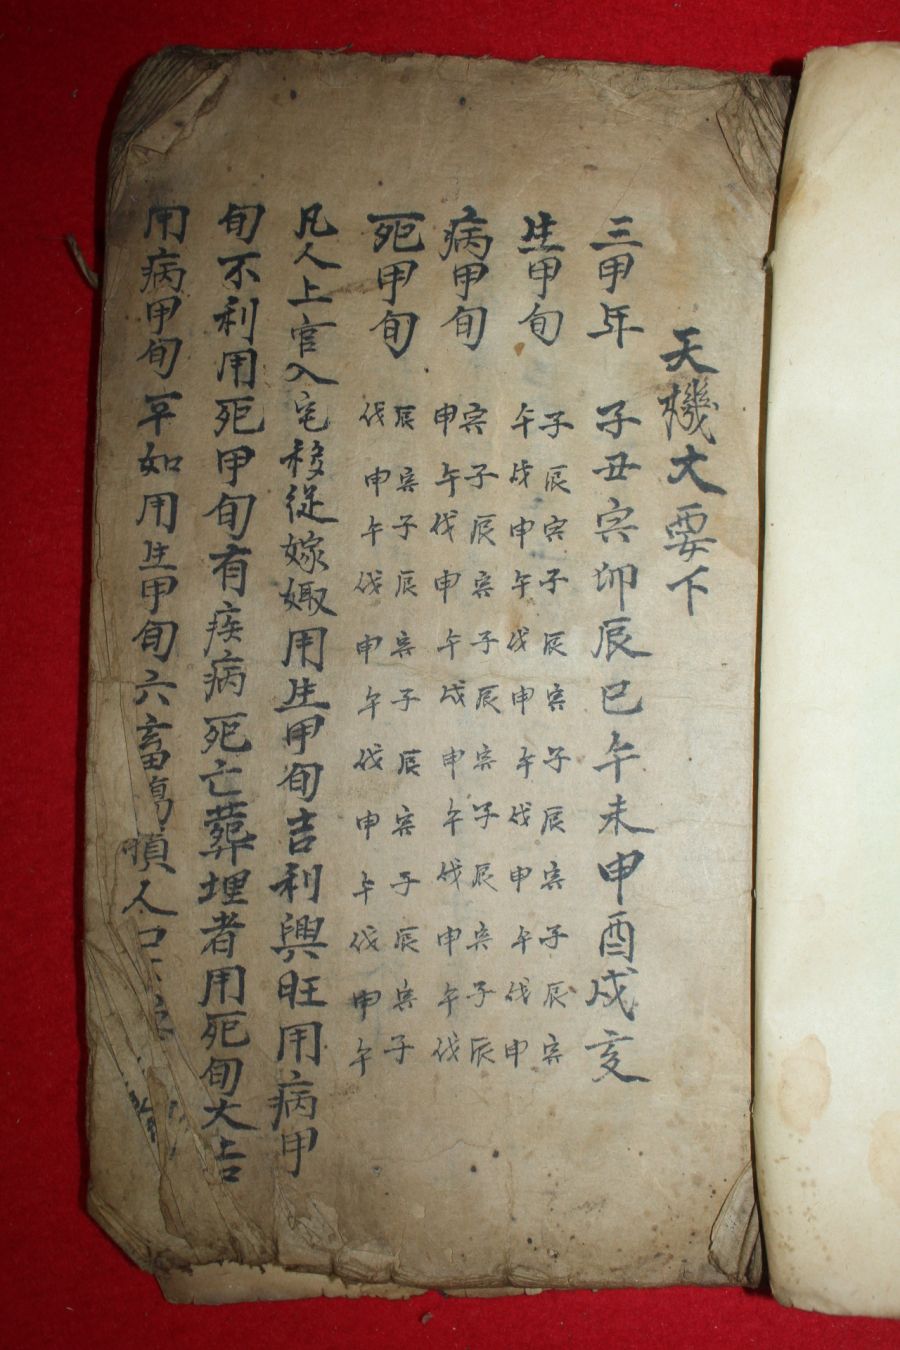 天機大要下
三甲年 子丑寅卯辰巳午未申酉戌亥
生甲旬 子辰寅子辰寅子辰寅子辰寅
午戌申午戌申午戌申午戌申
病甲旬 寅子辰寅子辰寅子辰寅子辰
申午戌申午戌申午戌申午戌
死甲旬 辰寅子辰寅子辰寅子辰寅子
戌申午戌申午戌申午戌申午
凡人上官入宅移徙嫁娶用生甲旬吉利興旺用病甲
旬不利用死甲旬有疾病死亡葬埋者用死旬大吉
用病甲旬平如用生甲旬六畜傷損人口